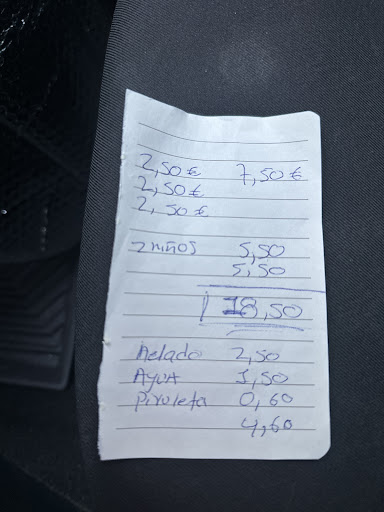 2,50€ 7,50€
2,50€
2,50€
2 niños 5,50
5,50
18,50
Helado 2,50
Agua 1,50
Piruleta 0,60
4,60